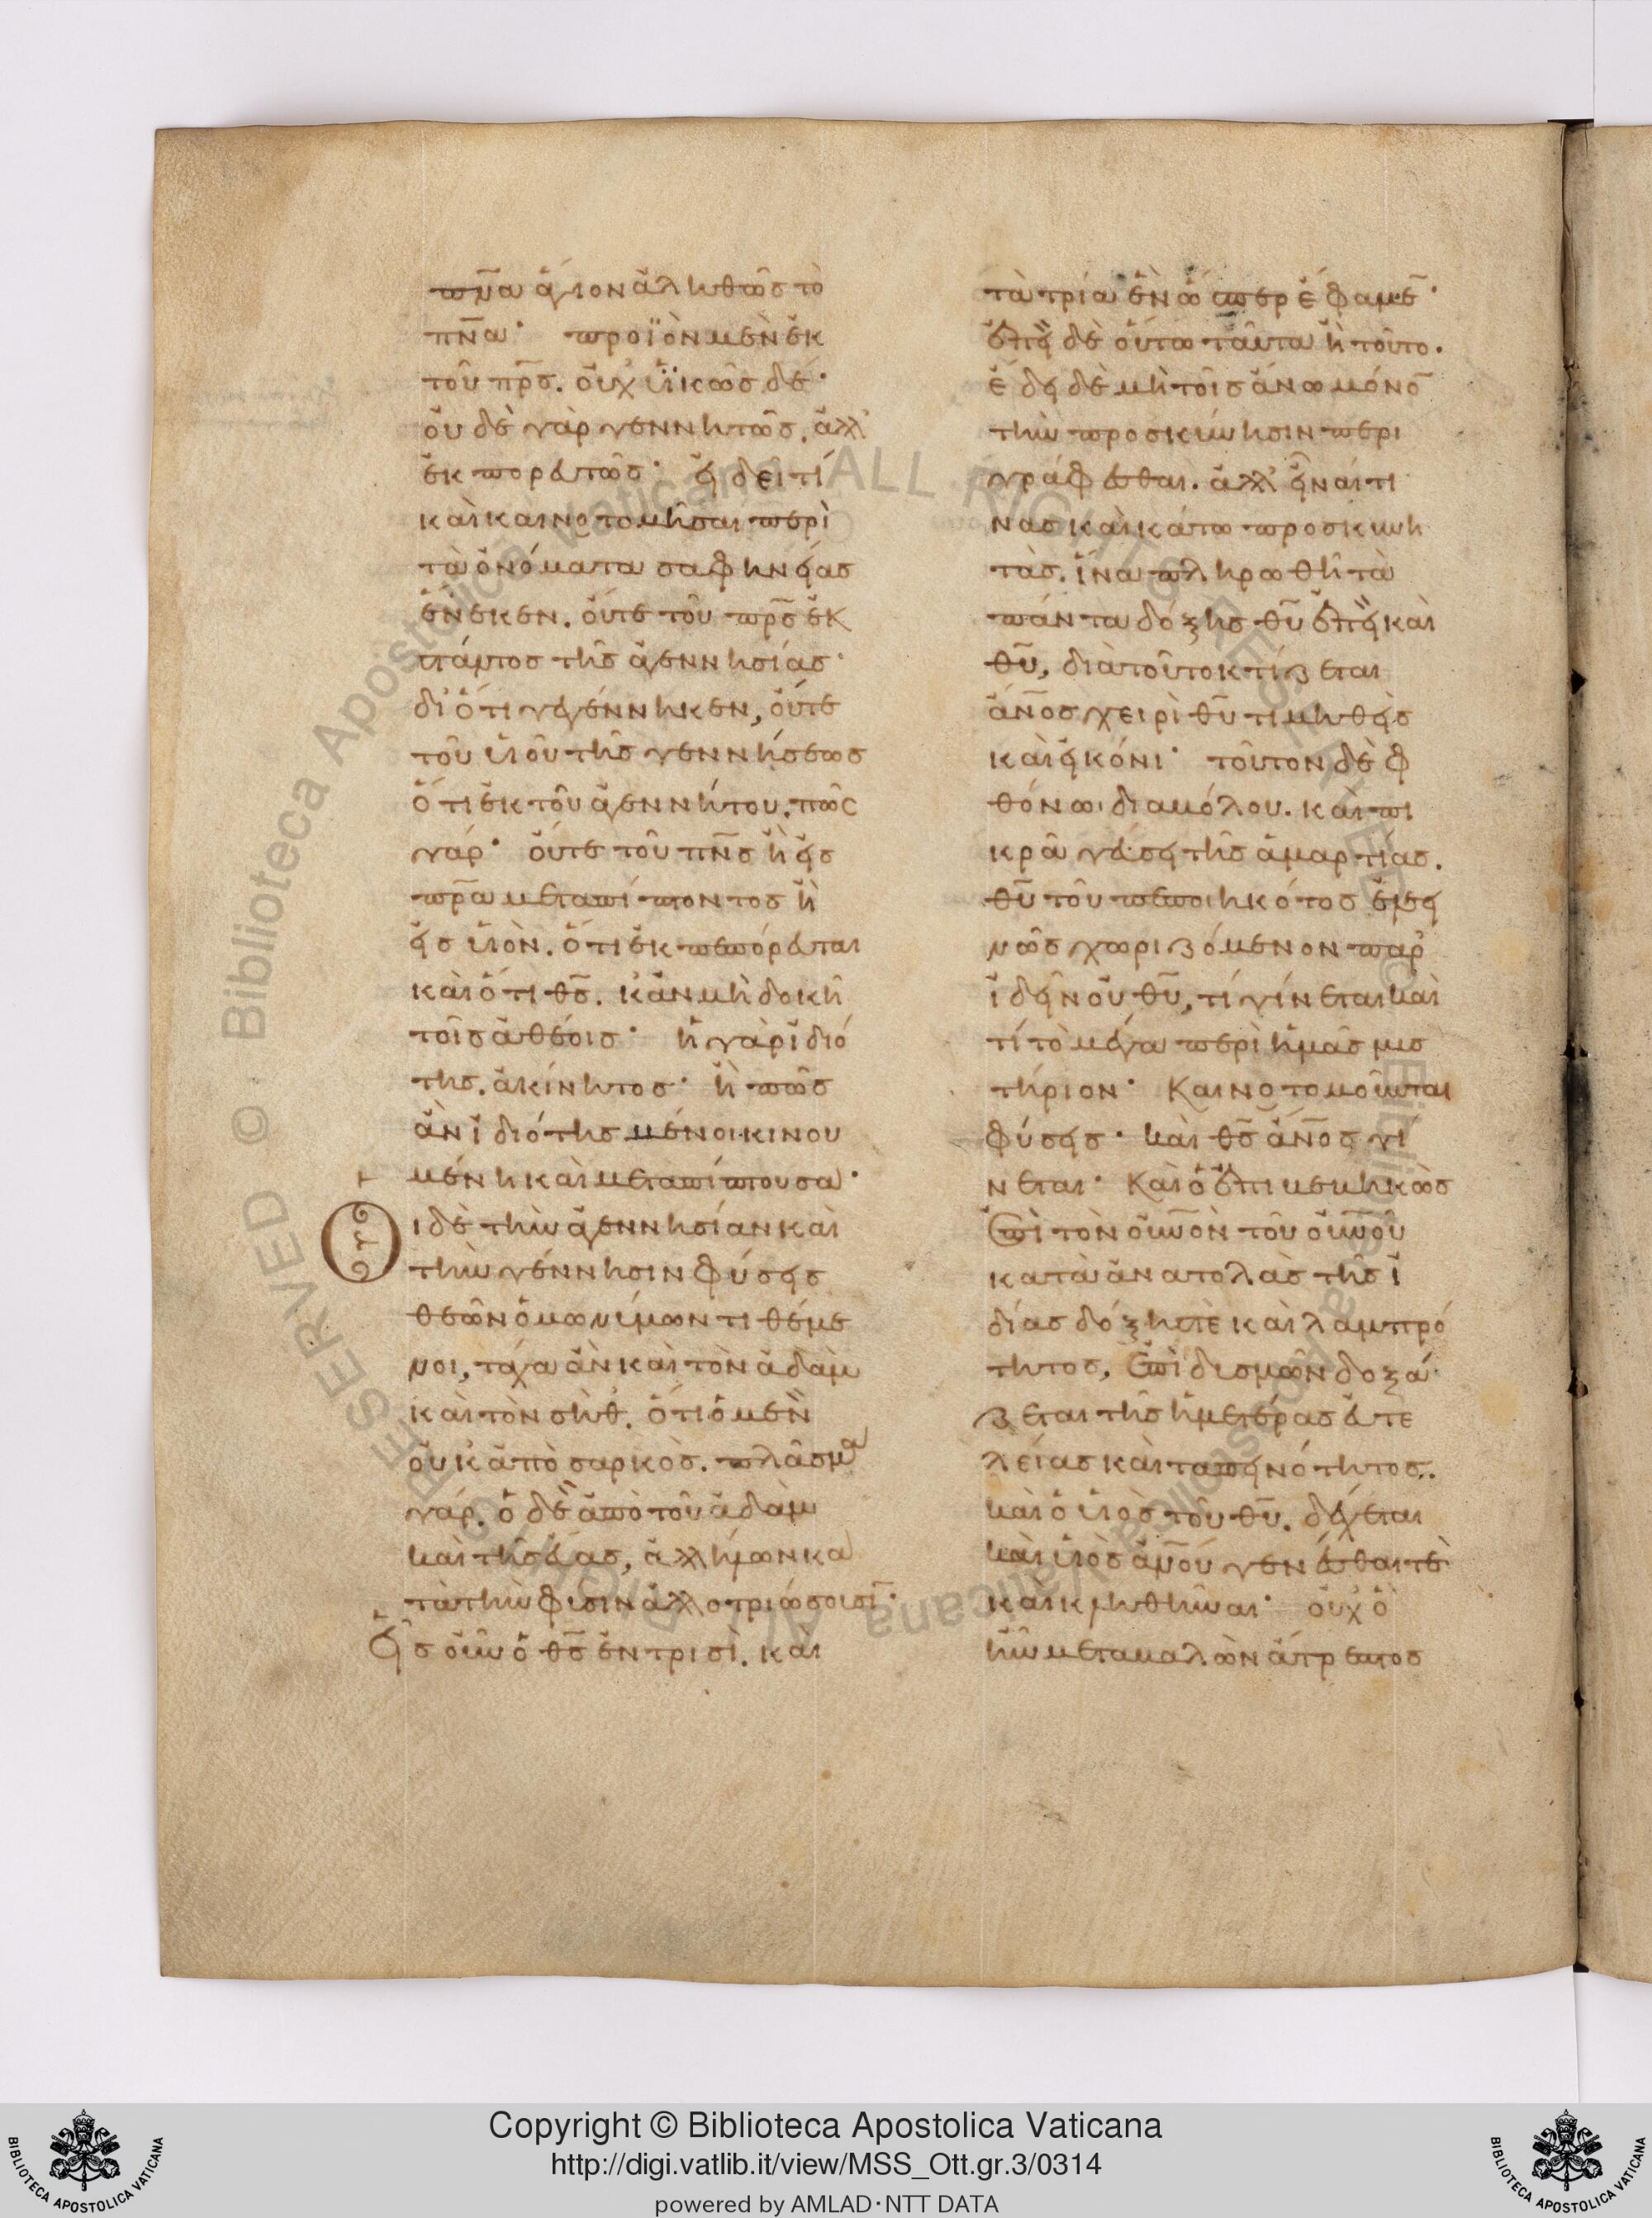 πνα ἅγιον ἀληθῶς τὸ
πνα· προϊὸν μὲν ἐκ
τοῦ πρς. οὐχ ὑϊκῶς δέ·
οὐδὲ γὰρ γεννητῶς. ἀλλ'
ἐκπορευτῶς· εἰ δεῖ τί
καὶ καινοτομῆσαι περὶ
τὰ ὀνόματα σαφηνείας
ἕνεκεν. οὔτε τοῦ πρς ἐκ
στάντος τῆς ἀγεννησίας·
δι' ὅτι γεγέννηκεν, οὔτε
τοῦ υἱοῦ τῆς γεννήσεως
ὅτι ἐκ τοῦ ἀγεννήτου. πῶς
γάρ· οὔτε τοῦ πνς ἢ εἰς
πρα μεταπίπτοντος ἢ
εἰς υἱὸν. ὅτι ἐκπεπόρευται
καὶ ὅτι θς. κἂν μὴ δοκῆ
τοῖς ἀθέοις· ἡ γὰρ ἰδιό
της. ἀκίνητος· ἢ πῶς
ἂν ἰδιότης μένοι κινου
μένη καὶ μεταπίπτουσα·
Οἱ δὲ τὴν ἀγεννησίαν καὶ
τὴν γέννησιν φύσεις
θεῶν ὁμωνύμων τιθέμε
νοι, τάχα ἂν καὶ τὸν ἀδὰμ
καὶ τὸν σὴθ. ὅτι ὁ μὲν
οὐκ ἀπὸ σαρκὸς. πλάσμα
γάρ. ὁ δὲ ἀπὸ τοῦ ἀδὰμ
καὶ τῆς εὔας, ἀλλήλων κα
τὰ τὴν φύσιν ἀλλοτριώσουσι·
Εἷς οὖν ὁ θς ἐν τρισὶ. καὶ
τὰ τρία ἓν ὥσπερ ἔφαμεν·
ἐπεὶ δὲ οὕτω ταῦτα ἢ τοῦτο.
ἔδει δὲ μὴ τοῖς ἄνω μόνον
τὴν προσκύνησιν περι
γράφεσθαι. ἀλλ' εἶναί τι
νας καὶ κάτω προσκυνη
τὰς. ἵνα πληρωθῆ τὰ
πάντα δόξης θυ ἐπεὶ καὶ
θυ, διὰ τοῦτο κτίζεται
ἄνος χειρὶ θυ τιμηθεὶς
καὶ εἰκόνι· τοῦτον δὲ φ
θόνωι διαβόλου. καὶ πι
κρᾶ γεύσει τῆς ἁμαρτίας.
θυ τοῦ πεποιηκότος ἐλεει
νῶς χωριζόμενον παρ'
ἰδεῖν οὐ θυ, τί γίνεται καὶ
τί τὸ μέγα περὶ ἡμᾶς μυσ
τήριον· Καινοτομοῦνται
φύσεις· καὶ θς ἄνος γί
νεται· Καὶ ὁ ἐπιβεβηκὼς
ἐπὶ τὸν οὐνὸν τοῦ οὐνοῦ
κατὰ ἀνατολὰς τῆς ἰ
δίας δόξης τὲ καὶ λαμπρό
τητος, ἐπὶ δυσμῶν δοξά
ζεται τῆς ἡμετέρας εὐτε
λείας καὶ ταπεινότητος.
καὶ ὁ υἱὸς τοῦ θυ. δέχεται
καὶ υἱὸς ἀνοῦ γενέσθαι τὲ
καὶ κληθῆναι· οὐχ' ὃ
ἦν μεταβαλὼν ἄτρεπτος
Copyright © Biblioteca Apostolica Vaticana
http://digi.vatlib.it/view/MSS_Ott.gr.3/0314
powered by AMLAD·NTT DATA